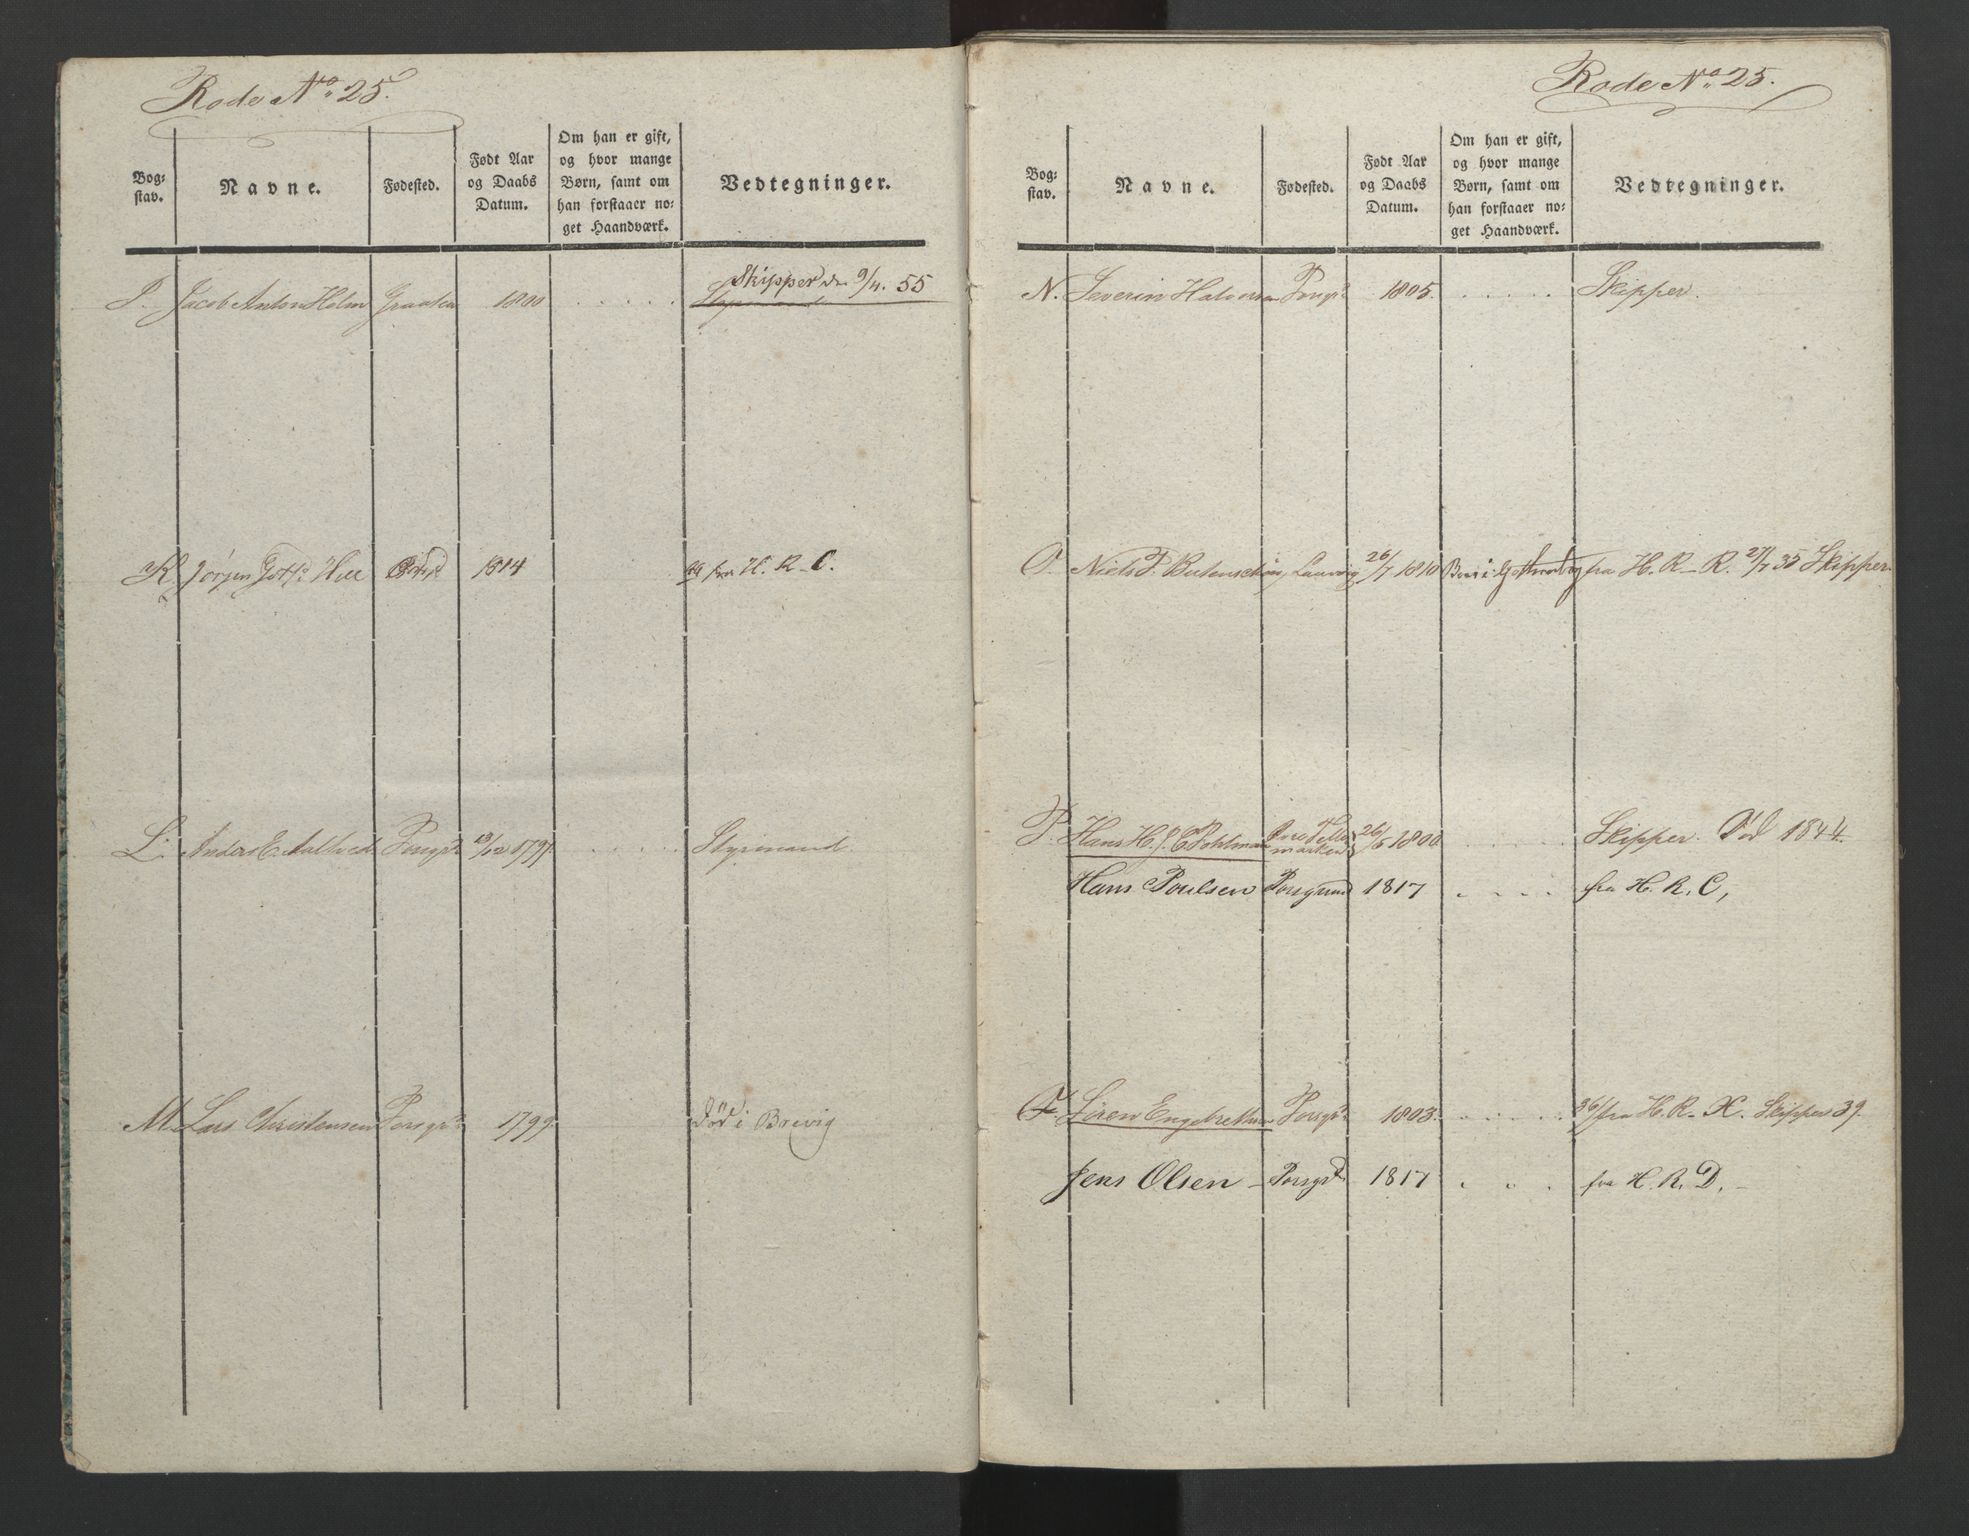 Rode No. 25.
Bog-
stav.
Navne.
Fødested.
Født Aar
og Daabs
Datum.
Om han er gift,
og hvor mange
Børn, samt om
han forstaaer no-
get Haandværk.
Vedtegninger.
Skipper den 9/4. 55
I. Jacob Anton Holm Graasten 1800 . . . . . Styrmand
K Jørgen Hill 1814 fra H. R. C.
L. Anders E. 13/12 1797. . . . . . Styrmand
M. Lars Christensen Porsgr. 1799. Død i Brevig
Rode No. 25.
Bog-
stav.
Navne.
Fødested.
Født Aar
og Daabs
Datum.
Om han er gift,
og hvor mange
Børn, samt om
han forstaaer no-
get Haandværk.
Vedtegninger.
N. Severin Halvorsen Porsgr. 1805. . . . . . Skipper.
O. Niels P. Butenschøn, Laurvig 26/7 1810 fra H. R. R. 27/7 35 Skipper.
P. Hans H. J. C. Pohlman 26/5 1800 . . . . . Skipper. Død 1844.
Hans Poulsen Porsgrund 1817 . . . . fra H. R. C,
Søren Engebrethsen Porsgr. 1803. . . . . . 36/ fra H. R. X. Skipper 39.
Jens Olsen - Porsgrd 1817 . . . fra H. R. D. -